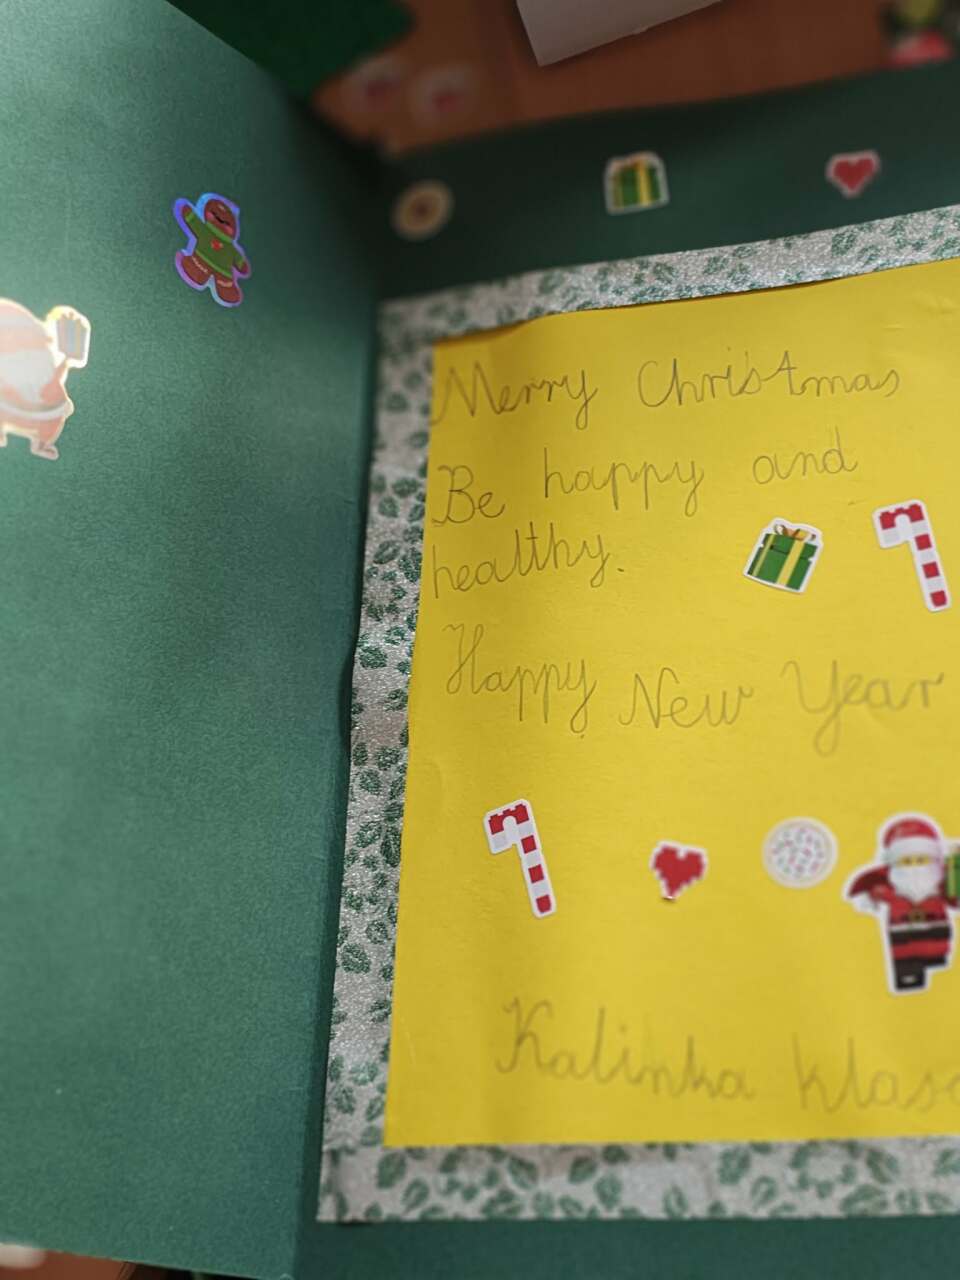 Merry Christmas
Be happy and
healthy.
Happy New Year
Kalinka